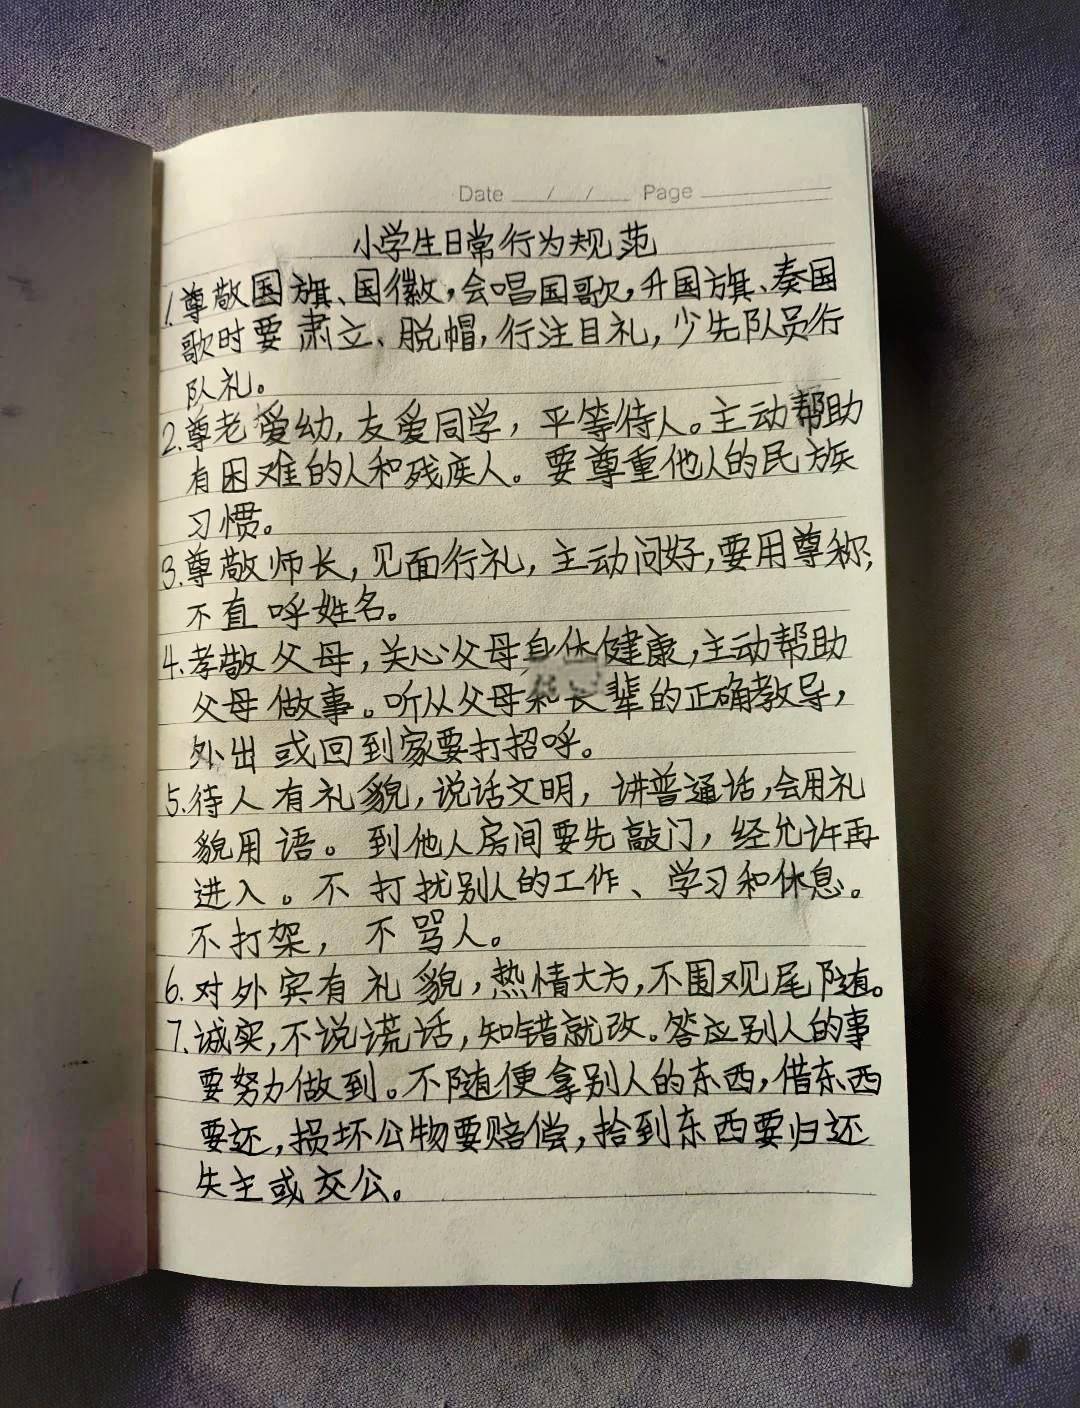 Date / / Page
小学生日常行为规范
1.尊敬国旗、国徽,会唱国歌,升国旗、奏国
歌时要肃立、脱帽,行注目礼,少先队员行
队礼。
2.尊老爱幼,友爱同学,平等待人。主动帮助
有困难的人和残疾人。要尊重他人的民族
习惯。
3.尊敬师长,见面行礼,主动问好,要用尊称,
不直呼姓名。
4.孝敬父母,关心父母身体健康,主动帮助
父母做事。听从父母和长辈的正确教导,
外出或回到家要打招呼。
5.待人有礼貌,说话文明,讲普通话,会用礼
貌用语。到他人房间要先敲门,经允许再
进入。不打扰别人的工作、学习和休息。
不打架,不骂人。
6.对外宾有礼貌,热情大方,不围观尾随。
7.诚实,不说谎话,知错就改。答应别人的事
要努力做到。不随便拿别人的东西,借东西
要还,损坏公物要赔偿,拾到东西要归还
失主或交公。